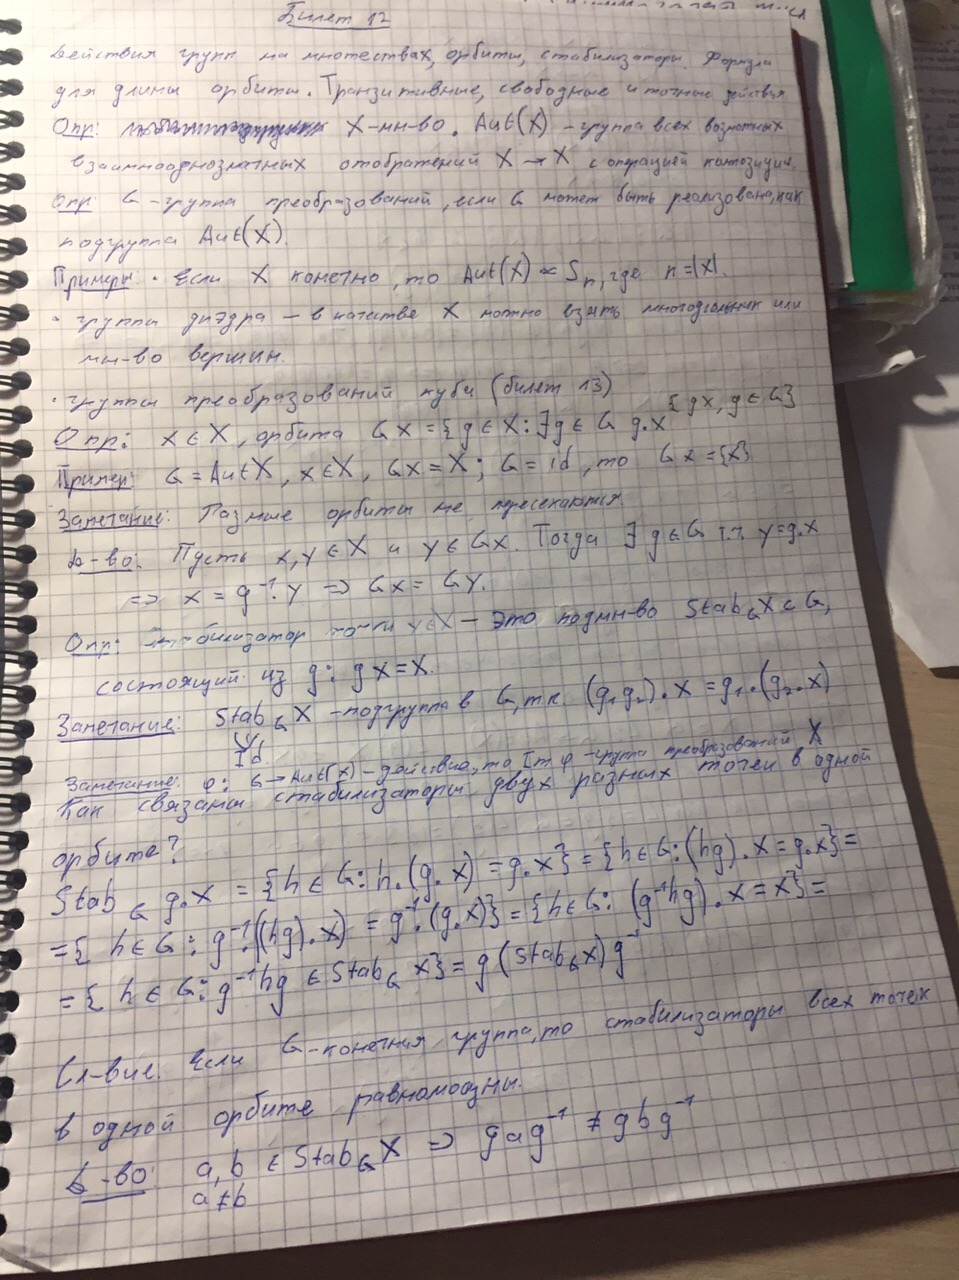 Билет 12
Действия групп на множествах, орбиты, стабилизаторы. Формула
для длины орбиты. Транзитивные, свободные и точные действия
Опр: X-мн-во. Aut(X) - группа всех возможных
взаимнооднозначных отображений X→X с операцией композиции.
Опр: G-группа преобразований, если G может быть реализована, как
подгруппа Aut(X).
Примеры: · Если X конечно, то Aut(X) ≃ Sn, где n=|X|.
· группа диэдра – в качестве X можно взять многоугольник или
мн-во вершин.
· группы преобразований куба (билет 13)
{gx, g∈G}
Опр: x∈X, орбита Gx = {y∈X: ∃g∈G g.x
Пример: G=AutX, x∈X, Gx=X; G=id, то Gx={x}
Замечание: Разные орбиты не пересекаются.
Д-во: Пусть x,y∈X и y∈Gx. Тогда ∃g∈G т.ч. y=g.x
=> x=g⁻¹.y => Gx=Gy.
Опр: Стабилизатор точки x∈X – это подмн-во StabGX⊂G,
состоящий из g: gx=x.
Замечание: StabGX - подгруппа в G, т.к. (g₁g₂).x=g₁.(g₂.x)
Id
Замечание: φ: G→Aut(X) - действие, то Im φ - группа преобразований X
Как связаны стабилизаторы двух разных точек в одной
орбите?
StabG g.x = {h∈G: h.(g.x)=g.x} = {h∈G: (hg).x=g.x} =
={h∈G: g⁻¹.((hg).x) = g⁻¹.(g.x)} = {h∈G: (g⁻¹hg).x=x} =
={h∈G: g⁻¹hg ∈ StabG x} = g(StabGx)g⁻¹
Сл-вие: Если G-конечная группа, то стабилизаторы всех точек
в одной орбите равномощны.
Д-во: a,b ∈ StabGX => gag⁻¹ ≠ gbg⁻¹
a≠b